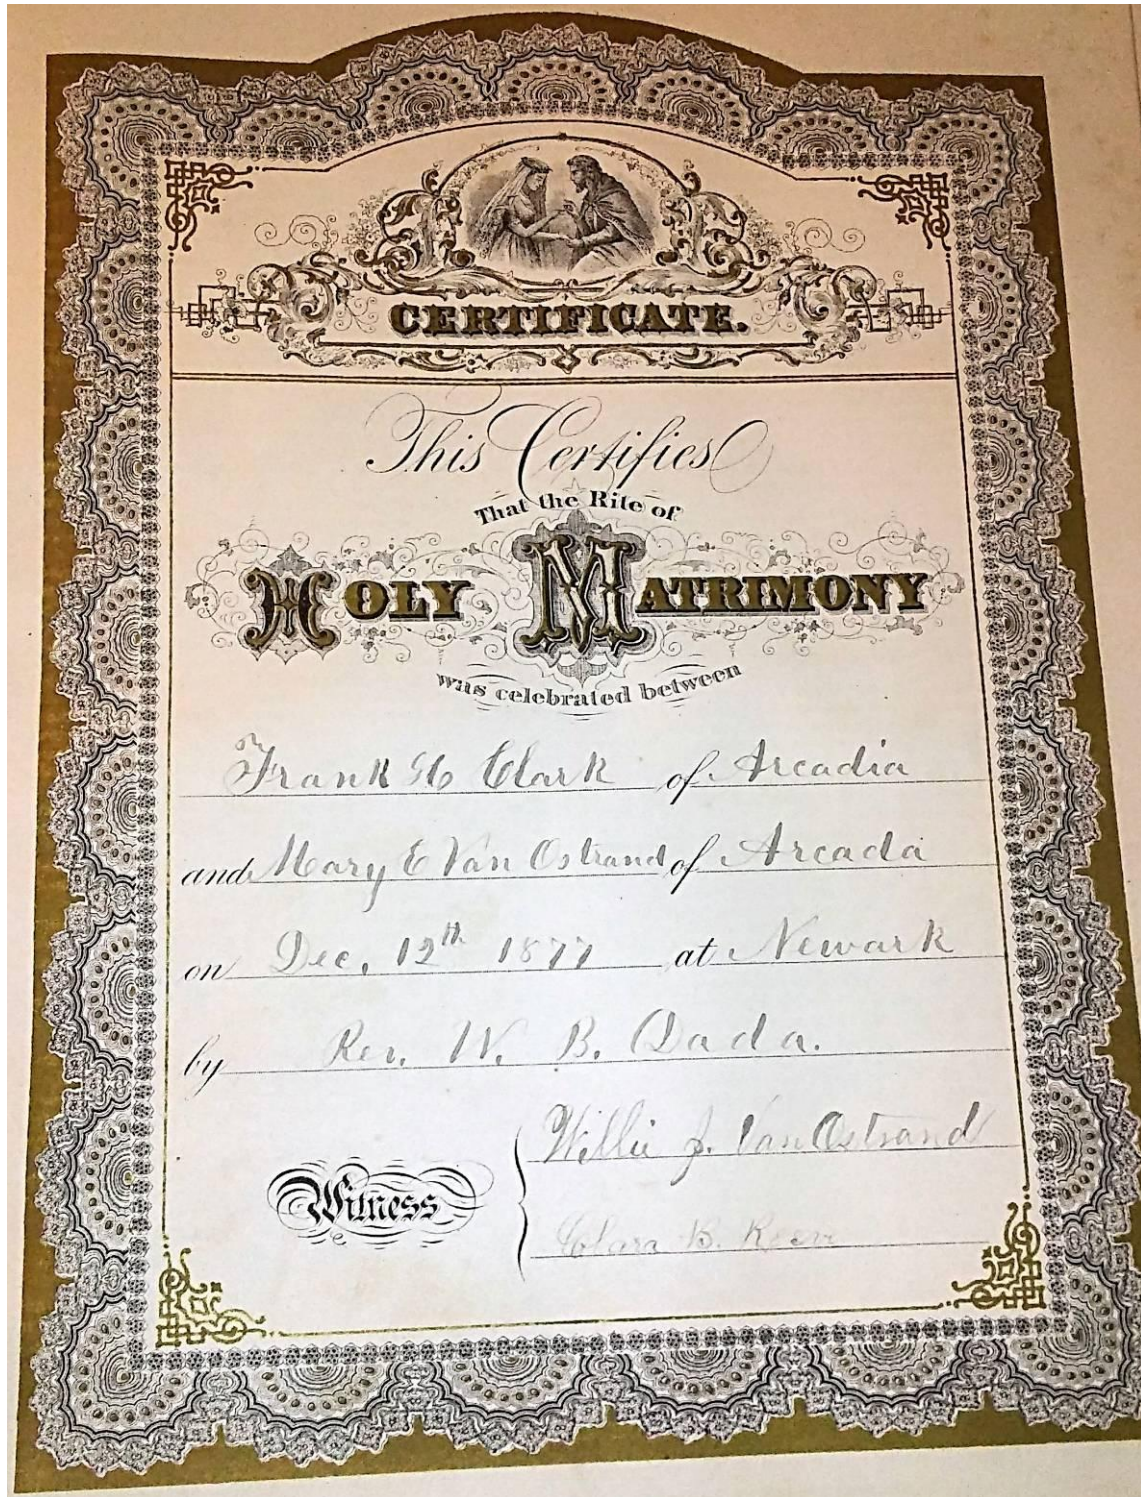 CERTIFICATE.
This Certifies
That the Rite of
HOLY MATRIMONY
was celebrated between
Frank H Clark of Arcadia
and Mary E Van Ostrand of Arcada
on Dec, 12th 1877 at Newark
by Rev. W. B. Dada.
Willie J. Van Ostrand
Witness
Clara B.